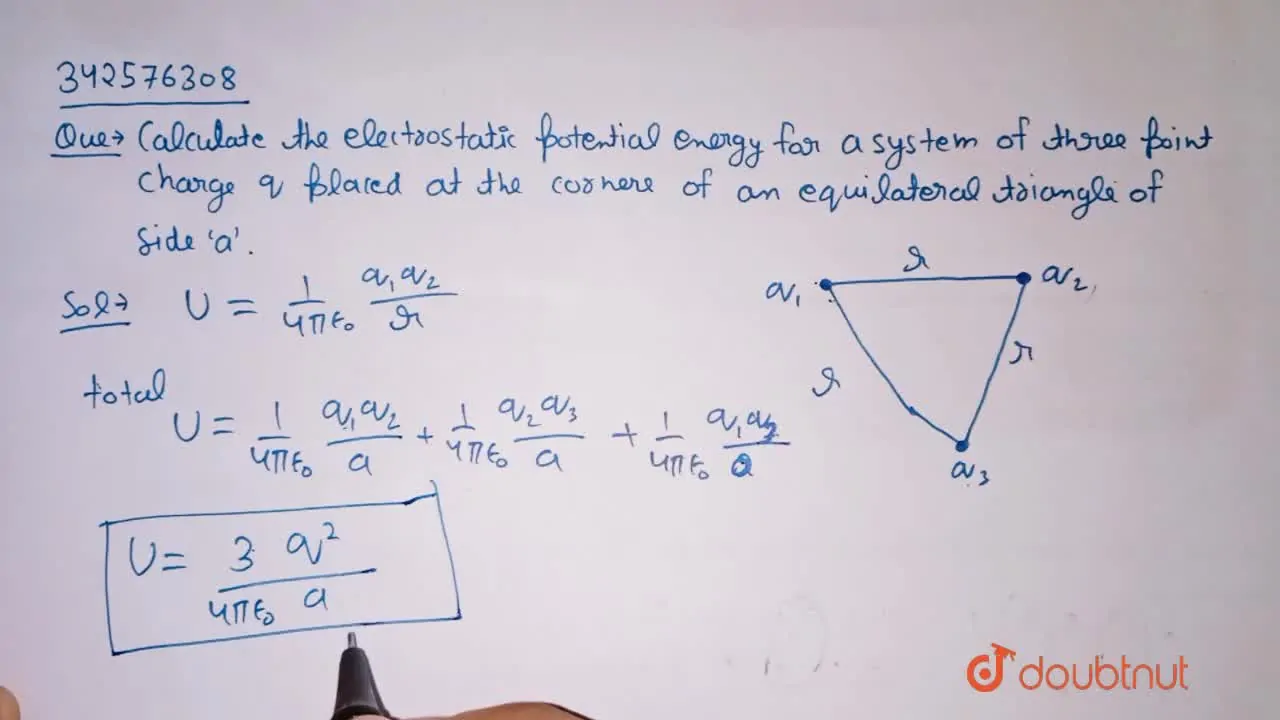 342576308
Que→ Calculate the electrostatic potential energy for a system of three point
charge q placed at the cornere of an equilateral triangle of
side 'a'.
Sol→ U = 1/4πε₀ q₁q₂/r
total
U = 1/4πε₀ q₁q₂/a + 1/4πε₀ q₂q₃/a + 1/4πε₀ q₁q₃/a
U = 3 q²/4πε₀ a
q₁ r q₂
r r
q₃
doubtnut